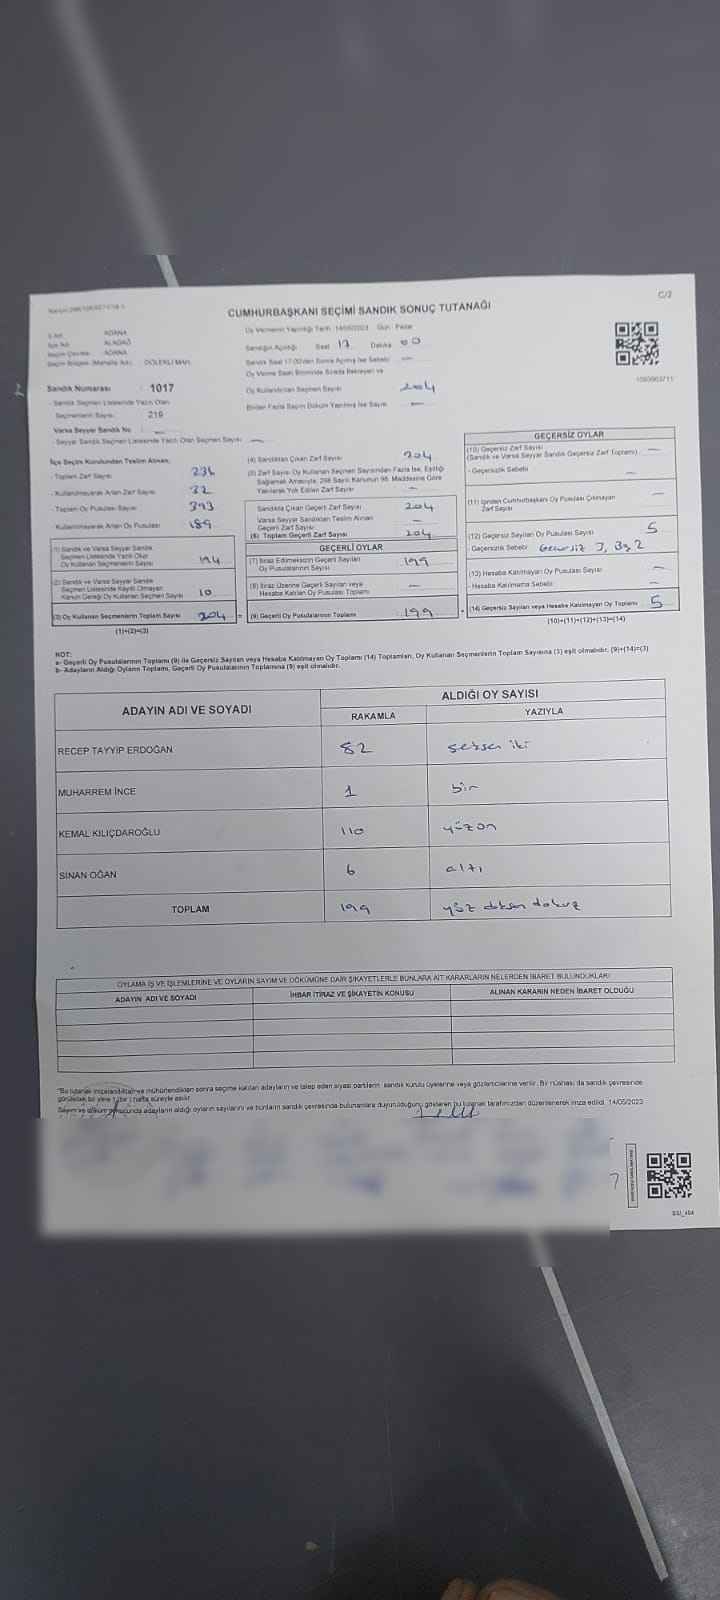 C/2
CUMHURBAŞKANI SEÇİMİ SANDIK SONUÇ TUTANAĞI
ADANA
ALADAĞ
ADANA
Seçim Bölgesi (Mahalle Adı) : DÖLEKLİ MAH.
Oy Vermenin Yapıldığı Tarih 14/05/2023 Gün Pazar
Sandığın Açıldığı Saat 17 Dakika 00
Sandık Saat 17:00'den Sonra Açılmış İse Sebebi —
Oy Verme Saati Bitiminde Sırada Bekleyen ve
Oy Kullandırılan Seçmen Sayısı 204
Birden Fazla Sayım Döküm Yapılmış İse Sayısı —
Sandık Numarası : 1017
- Sandık Seçmen Listesinde Yazılı Olan
Seçmenlerin Sayısı 219
Varsa Seyyar Sandık No : —
- Seyyar Sandık Seçmen Listesinde Yazılı Olan Seçmen Sayısı : —
İlçe Seçim Kurulundan Teslim Alınan;
- Toplam Zarf Sayısı 236
- Kullanılmayarak Artan Zarf Sayısı 32
- Toplam Oy Pusulası Sayısı 393
Kullanılmayarak Artan Oy Pusulası 189
(1) Sandık ve Varsa Seyyar Sandık
Seçmen Listesinde Yazılı Olup
Oy Kullanan Seçmenlerin Sayısı 194
(2) Sandık ve Varsa Seyyar Sandık
Seçmen Listesinde Kayıtlı Olmayan
Kanun Gereği Oy Kullanan Seçmen Sayısı 10
(3) Oy Kullanan Seçmenlerin Toplam Sayısı 204 =
(1)+(2)=(3)
(4) Sandıktan Çıkan Zarf Sayısı 204
(5) Zarf Sayısı Oy Kullanan Seçmen Sayısından Fazla İse, Eşitliği
Sağlamak Amacıyla, 298 Sayılı Kanunun 98. Maddesine Göre
Yakılarak Yok Edilen Zarf Sayısı —
Sandıkta Çıkan Geçerli Zarf Sayısı 204
Varsa Seyyar Sandıktan Teslim Alınan
Geçerli Zarf Sayısı —
(6) Toplam Geçerli Zarf Sayısı 204
GEÇERLİ OYLAR
(7) İtiraz Edilmeksizin Geçerli Sayılan
Oy Pusulalarının Sayısı 199
(8) İtiraz Üzerine Geçerli Sayılan veya
Hesaba Katılan Oy Pusulası Toplamı —
(9) Geçerli Oy Pusulalarının Toplamı 199 +
GEÇERSİZ OYLAR
(10) Geçersiz Zarf Sayısı
(Sandık ve Varsa Seyyar Sandık Geçersiz Zarf Toplamı) —
- Geçersizlik Sebebi —
(11) İçinden Cumhurbaşkanı Oy Pusulası Çıkmayan
Zarf Sayısı —
(12) Geçersiz Sayılan Oy Pusulası Sayısı 5
- Geçersizlik Sebebi
(13) Hesaba Katılmayan Oy Pusulası Sayısı —
- Hesaba Katılmama Sebebi —
(14) Geçersiz Sayılan veya Hesaba Katılmayan Oy Toplamı 5
(10)+(11)+(12)+(13)=(14)
NOT:
a- Geçerli Oy Pusulalarının Toplamı (9) ile Geçersiz Sayılan veya Hesaba Katılmayan Oy Toplamı (14) Toplamları, Oy Kullanan Seçmenlerin Toplam Sayısına (3) eşit olmalıdır. (9)+(14)=(3)
b- Adayların Aldığı Oyların Toplamı, Geçerli Oy Pusulalarının Toplamına (9) eşit olmalıdır.
ADAYIN ADI VE SOYADI
ALDIĞI OY SAYISI
RAKAMLA YAZIYLA
RECEP TAYYİP ERDOĞAN 82 seksen iki
MUHARREM İNCE 1 bir
KEMAL KILIÇDAROĞLU 110 yüzon
SİNAN OĞAN 6 altı
TOPLAM 199 yüz doksan dokuz
OYLAMA İŞ VE İŞLEMLERİNE VE OYLARIN SAYIM VE DÖKÜMÜNE DAİR ŞİKAYETLERLE BUNLARA AİT KARARLARIN NELERDEN İBARET BULUNDUKLARI
ADAYIN ADI VE SOYADI İHBAR İTİRAZ VE ŞİKAYETİN KONUSU ALINAN KARARIN NEDEN İBARET OLDUĞU
"Bu tutanak imzalandıktan ve mühürlendikten sonra seçime katılan adayların ve talep eden siyasi partilerin sandık kurulu üyelerine veya gözlemcilerine verilir. Bir nüshası da sandık çevresinde
görülebilir bir yere 1 (bir) hafta süreyle asılır.
Sayım ve döküm sonucunda adayların aldığı oyların sayılarını ve bunların sandık çevresinde bulunanlara duyurulduğunu gösteren bu tutanak tarafımızdan düzenlenerek imza edildi. 14/05/2023